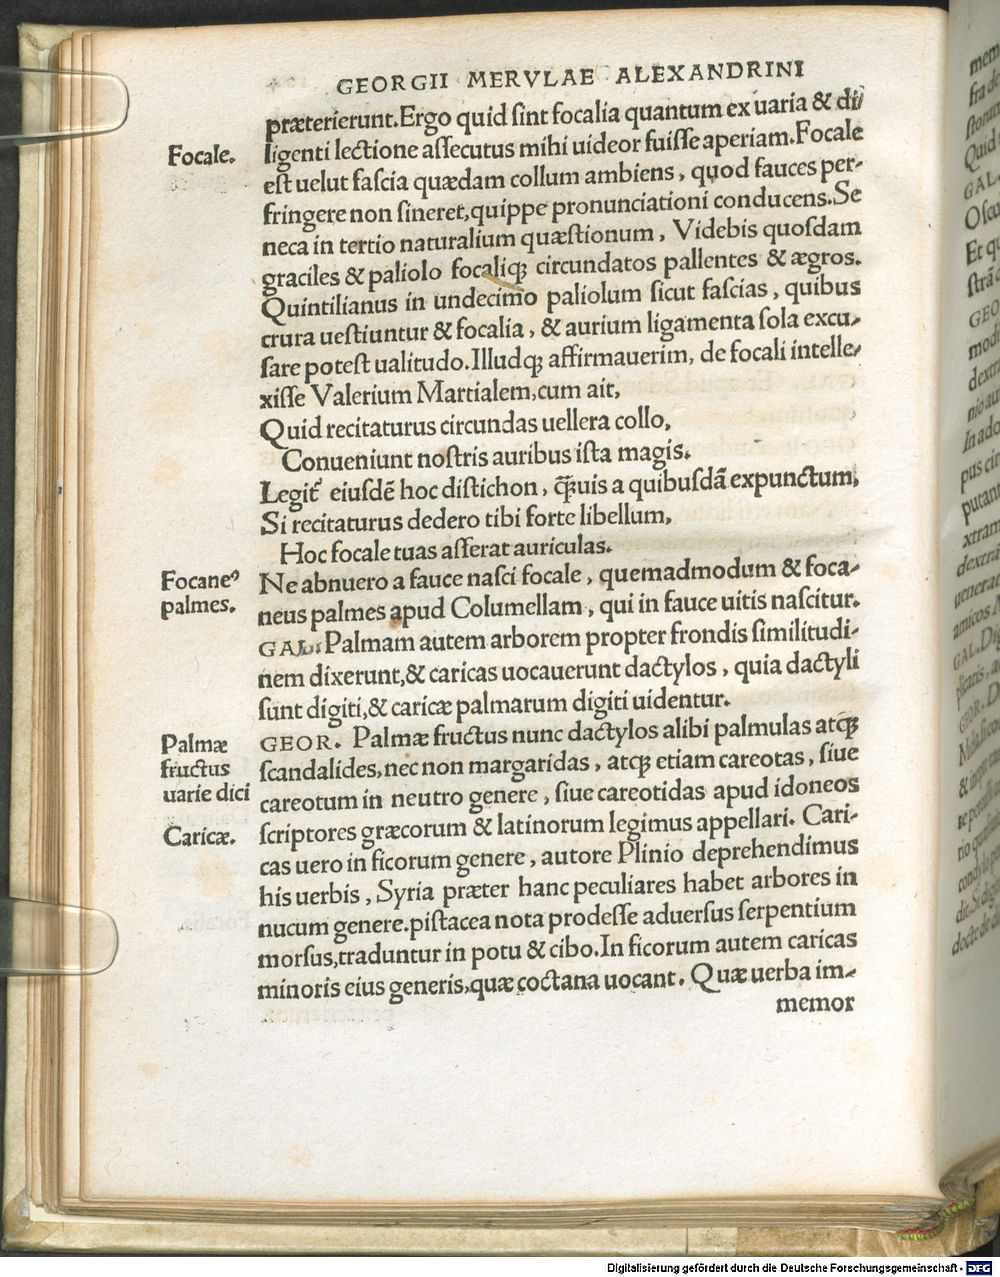 GEORGII MERVLAE ALEXANDRINI
præterierunt.Ergo quid ſint focalia quantum ex uaria & di/
Focale.
ligenti lectione aſſecutus mihi uideor fuiſſe aperiam.Focale
eſt uelut faſcia quædam collum ambiens, quod fauces per-
fringere non ſineret,quippe pronunciationi conducens.Se
neca in tertio naturalium quæſtionum, Videbis quoſdam
graciles & paliolo focaliqꝫ circundatos pallentes & ægros.
Quintilianus in undecimo paliolum ſicut faſcias, quibus
crura ueſtiuntur & focalia, & aurium ligamenta ſola excu-
ſare poteſt ualitudo.Illudqꝫ affirmauerim, de focali intelle-
xiſſe Valerium Martialem,cum ait,
Quid recitaturus circundas uellera collo,
Conueniunt noſtris auribus iſta magis.
Legit᷑ eiuſdē hoc diſtichon, q̄ꝫuis a quibuſdā expunctum,
Si recitaturus dedero tibi forte libellum,
Hoc focale tuas aſſerat auriculas.
Focaneꝰ
palmes.
Ne abnuero a fauce naſci focale, quemadmodum & foca-
neus palmes apud Columellam, qui in fauce uitis naſcitur.
GAL. Palmam autem arborem propter frondis ſimilitudi-
nem dixerunt,& caricas uocauerunt dactylos, quia dactyli
ſunt digiti,& caricæ palmarum digiti uidentur.
Palmæ
fructus
uarie dici
GEOR. Palmæ fructus nunc dactylos alibi palmulas atqꝫ
ſcandalides,nec non margaridas, atqꝫ etiam careotas, ſiue
careotum in neutro genere, ſiue careotidas apud idoneos
Caricæ.
ſcriptores græcorum & latinorum legimus appellari. Cari-
cas uero in ficorum genere, autore Plinio deprehendimus
his uerbis, Syria præter hanc peculiares habet arbores in
nucum genere.piſtacea nota prodeſſe aduerſus ſerpentium
morſus,traduntur in potu & cibo.In ficorum autem caricas
minoris eius generis,quæ coctana uocant. Quæ uerba im-
memor
Digitalisierung gefördert durch die Deutsche Forschungsgemeinschaft - DFG